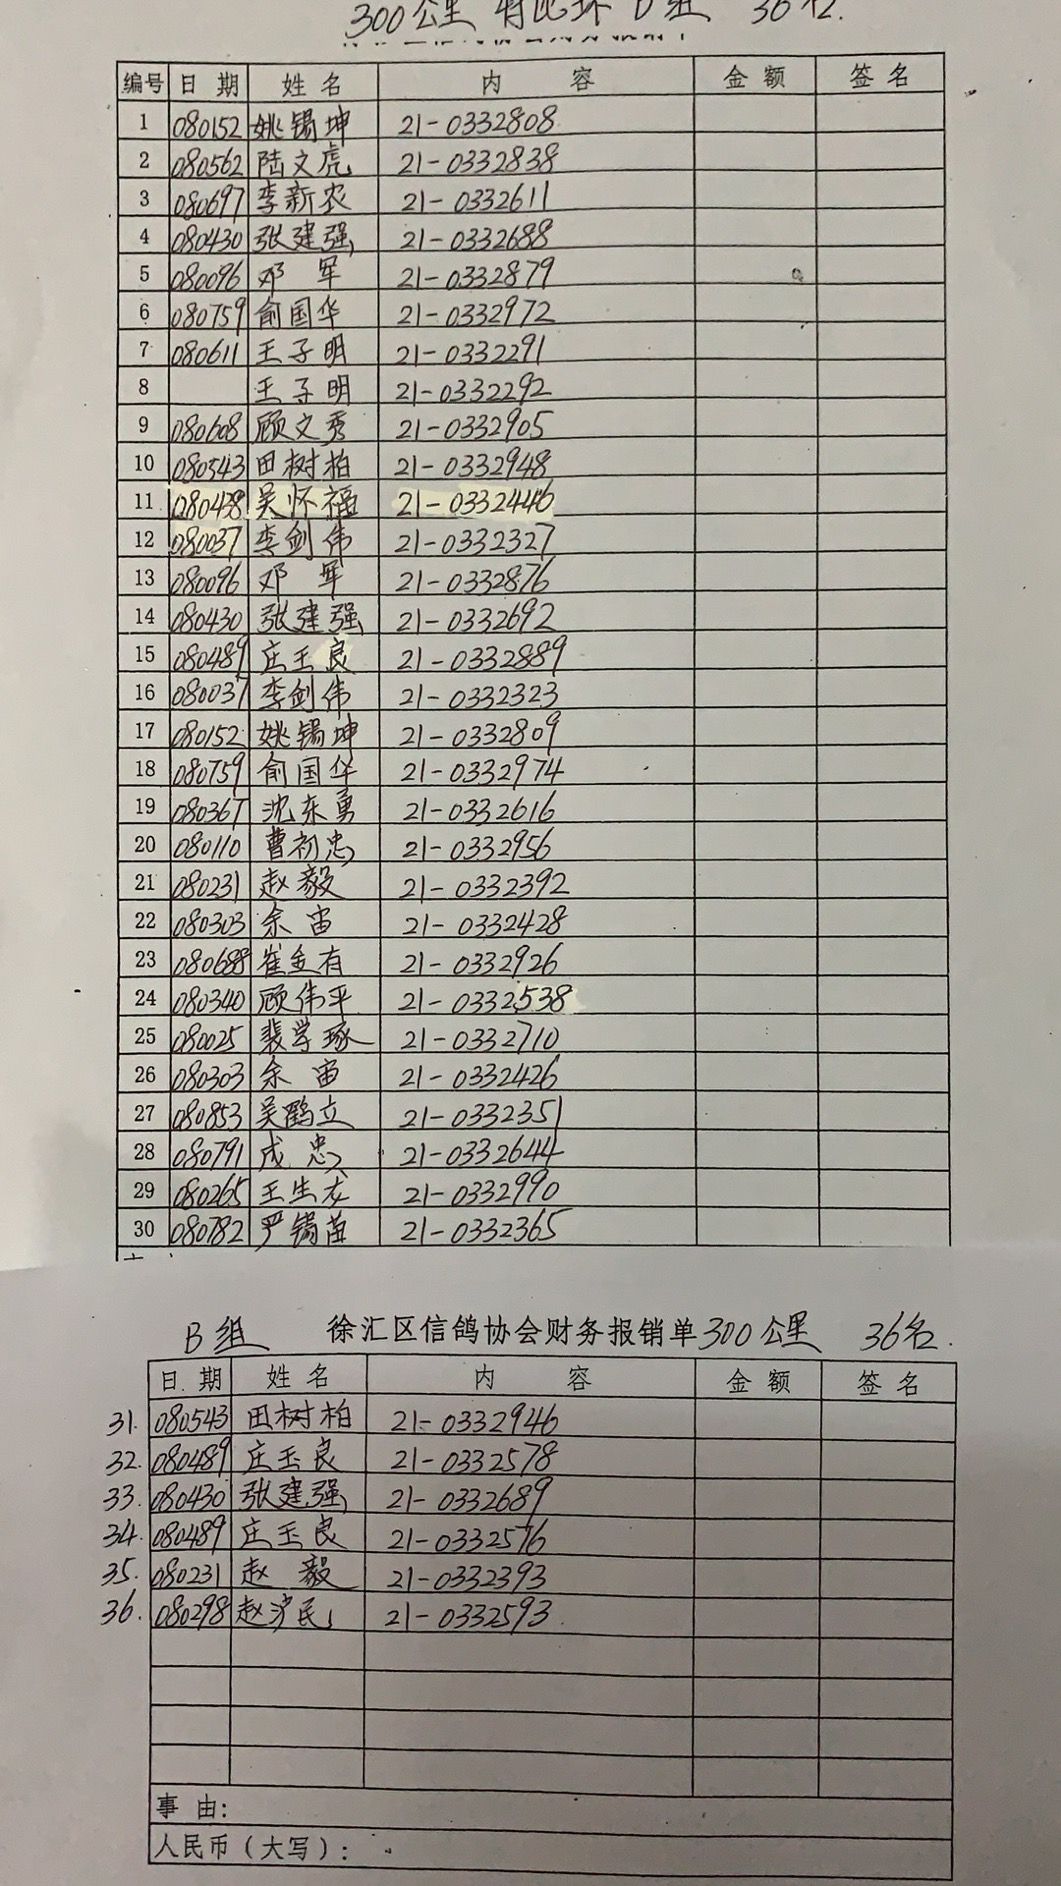 300公里 特比环 B组 36名.
编号 日期 姓名 内容 金额 签名
1 080152 姚锡坤 21-0332808
2 080562 陆文虎 21-0332838
3 080697 李新农 21-0332611
4 080430 张建强 21-0332688
5 080096 邓军 21-0332879
6 080759 俞国华 21-0332972
7 080611 王子明 21-0332291
8 王子明 21-0332292
9 080608 顾文秀 21-0332905
10 080543 田树柏 21-0332948
11 080438 吴怀福 21-0332446
12 080037 李剑伟 21-0332327
13 080096 邓军 21-0332876
14 080430 张建强 21-0332692
15 080489 庄玉良 21-0332889
16 080037 李剑伟 21-0332323
17 080152 姚锡坤 21-0332809
18 080759 俞国华 21-0332974
19 080367 沈东勇 21-0332616
20 080110 曹初忠 21-0332956
21 080231 赵毅 21-0332392
22 080303 余宙 21-0332428
23 080688 崔金有 21-0332926
24 080340 顾伟平 21-0332538
25 080025 裴学琢 21-0332710
26 080303 余宙 21-0332426
27 080853 吴鹤立 21-0332351
28 080791 成忠 21-0332644
29 080265 王生友 21-0332990
30 080782 严锡苗 21-0332365
B组 徐汇区信鸽协会财务报销单 300公里 36名.
日期 姓名 内容 金额 签名
31. 080543 田树柏 21-0332946
32. 080489 庄玉良 21-0332578
33. 080430 张建强 21-0332689
34. 080489 庄玉良 21-0332576
35. 080231 赵毅 21-0332393
36. 080298 赵沪民 21-0332593
事由:
人民币(大写):